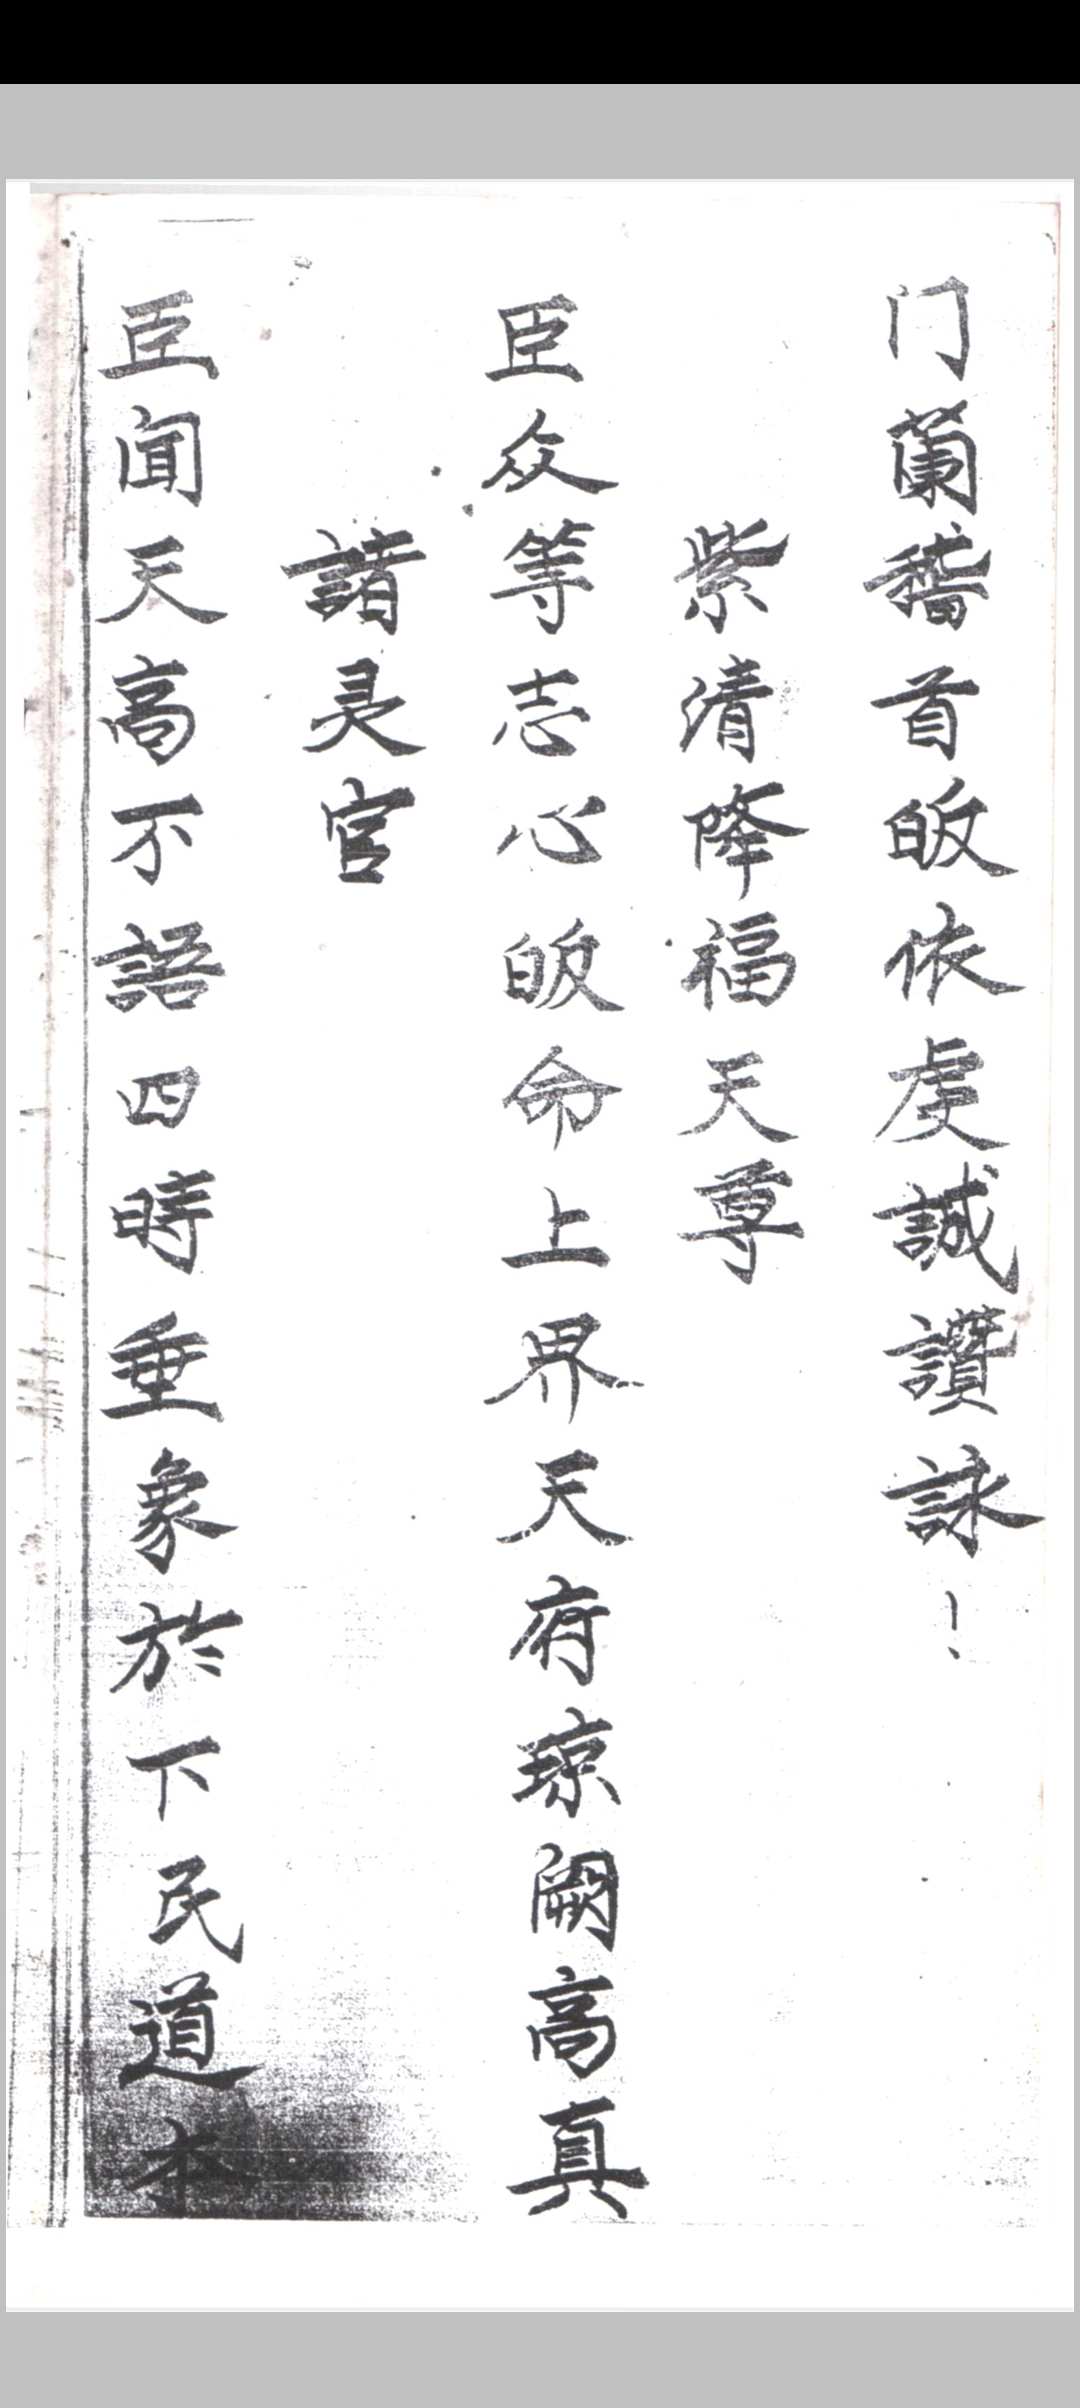 门蘭稽首皈依虔誠讚詠！
紫清降福天尊
臣众等志心皈命上界天府琼阙高真
諸灵官
臣闻天高不語四時垂象於下民道本